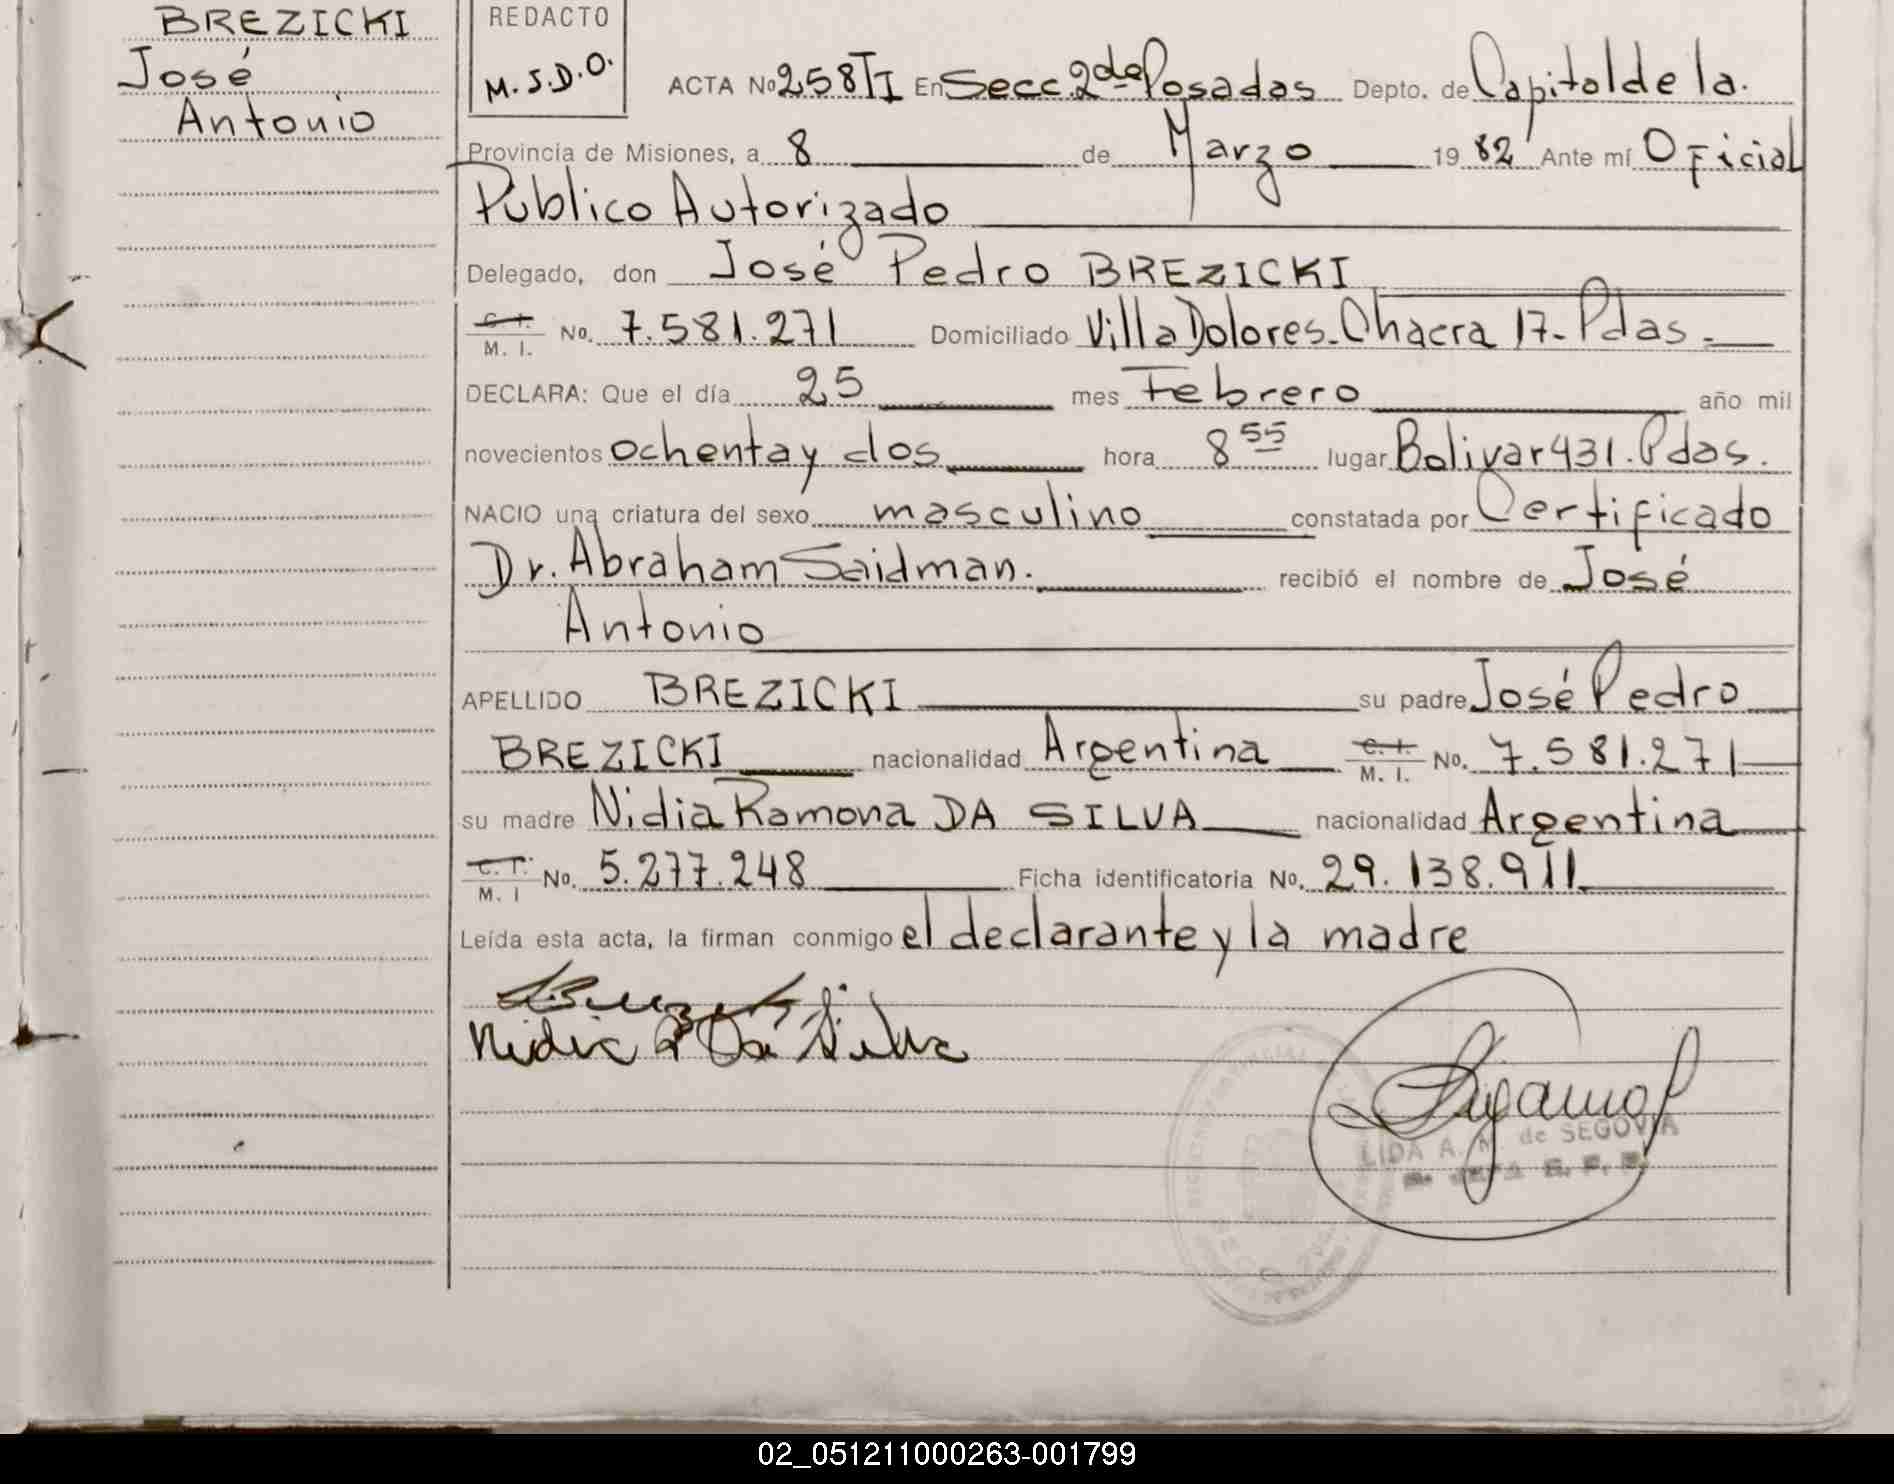 BREZICKI
José
Antonio
REDACTO
M.S.D.O.
ACTA No 258 TI En Secc. 2da Posadas Depto. de Capital de la.
Provincia de Misiones, a 8 de Marzo 1982 Ante mí Oficial
Publico Autorizado
Delegado, don José Pedro BREZICKI
C. I. M. I. No. 7.581.271 Domiciliado Villa Dolores. Chacra 17- Pdas.
DECLARA: Que el día 25 mes Febrero año mil
novecientos ochenta y dos hora 8 55 lugar Bolivar 431. Pdas.
NACIO una criatura del sexo masculino constatada por Certificado
Dr. Abraham Saidman. recibió el nombre de José
Antonio
APELLIDO BREZICKI su padre José Pedro
BREZICKI nacionalidad Argentina C. I. M. I. No. 7.581.271
su madre Nidia Ramona DA SILVA nacionalidad Argentina
C. I. M. I No. 5.277.248 Ficha identificatoria No. 29.138.911
Leída esta acta, la firman conmigo el declarante y la madre
Nidia R Da Silva
LIDA A. M. de SEGOVIA
02_051211000263-001799